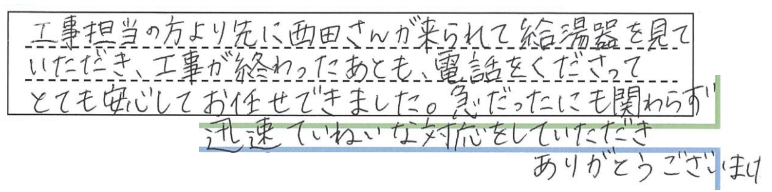 工事担当の方より先に西田さんが来られて給湯器を見て
いただき、工事が終わったあとも、電話をくださって
とても安心してお任せできました。急だったにも関わらず
迅速ていねいな対応をしていただき
ありがとうございました